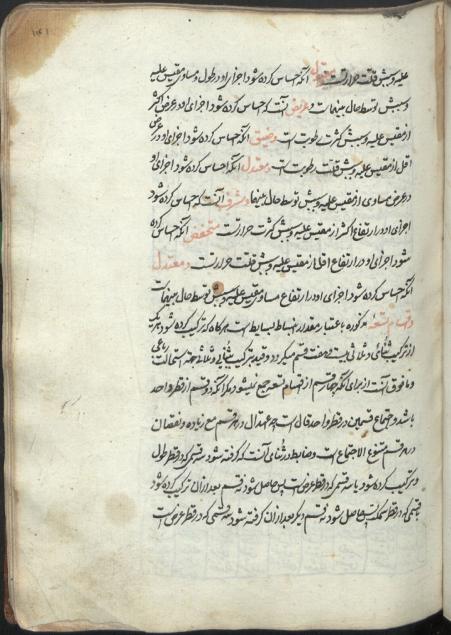 علیه و سببش قلت حرارتست معتدل آنکه احساس کرده شود اجزای او در طول مساوی مقیس علیه
و سببش توسط حال بینهما و عریض آنست که احساس کرده شود اجزای او در عرض اکثر
از مقیس علیه و سببش کثرت رطوبت است و ضیق آنکه احساس کرده شود اجزای او در عرض
اقل از مقیس علیه و سببش قلت رطوبت است و معتدل آنکه احساس کرده شود اجزای او
در عرض مساوی از مقیس علیه و سببش توسط حال بینهما و مشرف آنست که احساس کرده شود
اجزای او در ارتفاع اکثر از مقیس علیه و سببش کثرت حرارتست منخفض آنکه احساس کرده
شود اجزای او در ارتفاع اقل از مقیس علیه و سببش قلت حرارتست و معتدل
آنکه احساس کرده شود اجزای او در ارتفاع مساوی مقیس علیه و سببش توسط حال بینهما است
و اقسام تسعه مذکوره باعتبار مقدار نبض بسایط است هرگاه که ترکیب کرده شود هر یک
از ترکیب ثنائی و ثلاثی بیست و هفت قسم میگردد و قید بترکیب ثنائی و ثلاثی جهة استحالت رباعی
و ما فوق آنست از برای آنکه چهار قسم از اقسام تسعه جمع نمیشود مگر آنکه دو قسم از قطر واحد
باشد و اجتماع قسمین در قطر واحد محال است چه اعتدال در هر قسم مع زیاده و نقصان
در هر قسم ممتنع الاجتماع است و ضابطه در ثنائی آنست که گرفته شود سه قسمی که در قطر طول
و ترکیب کرده شود با سه قسمی که در قطر عرض است پس حاصل شود نه قسم بعد از آن ترکیب کرده شود
بقسمی که در قطر سمک است پس حاصل شود نه قسم دیگر بعد از آن گرفته شود سه قسمی که در قطر عرض است